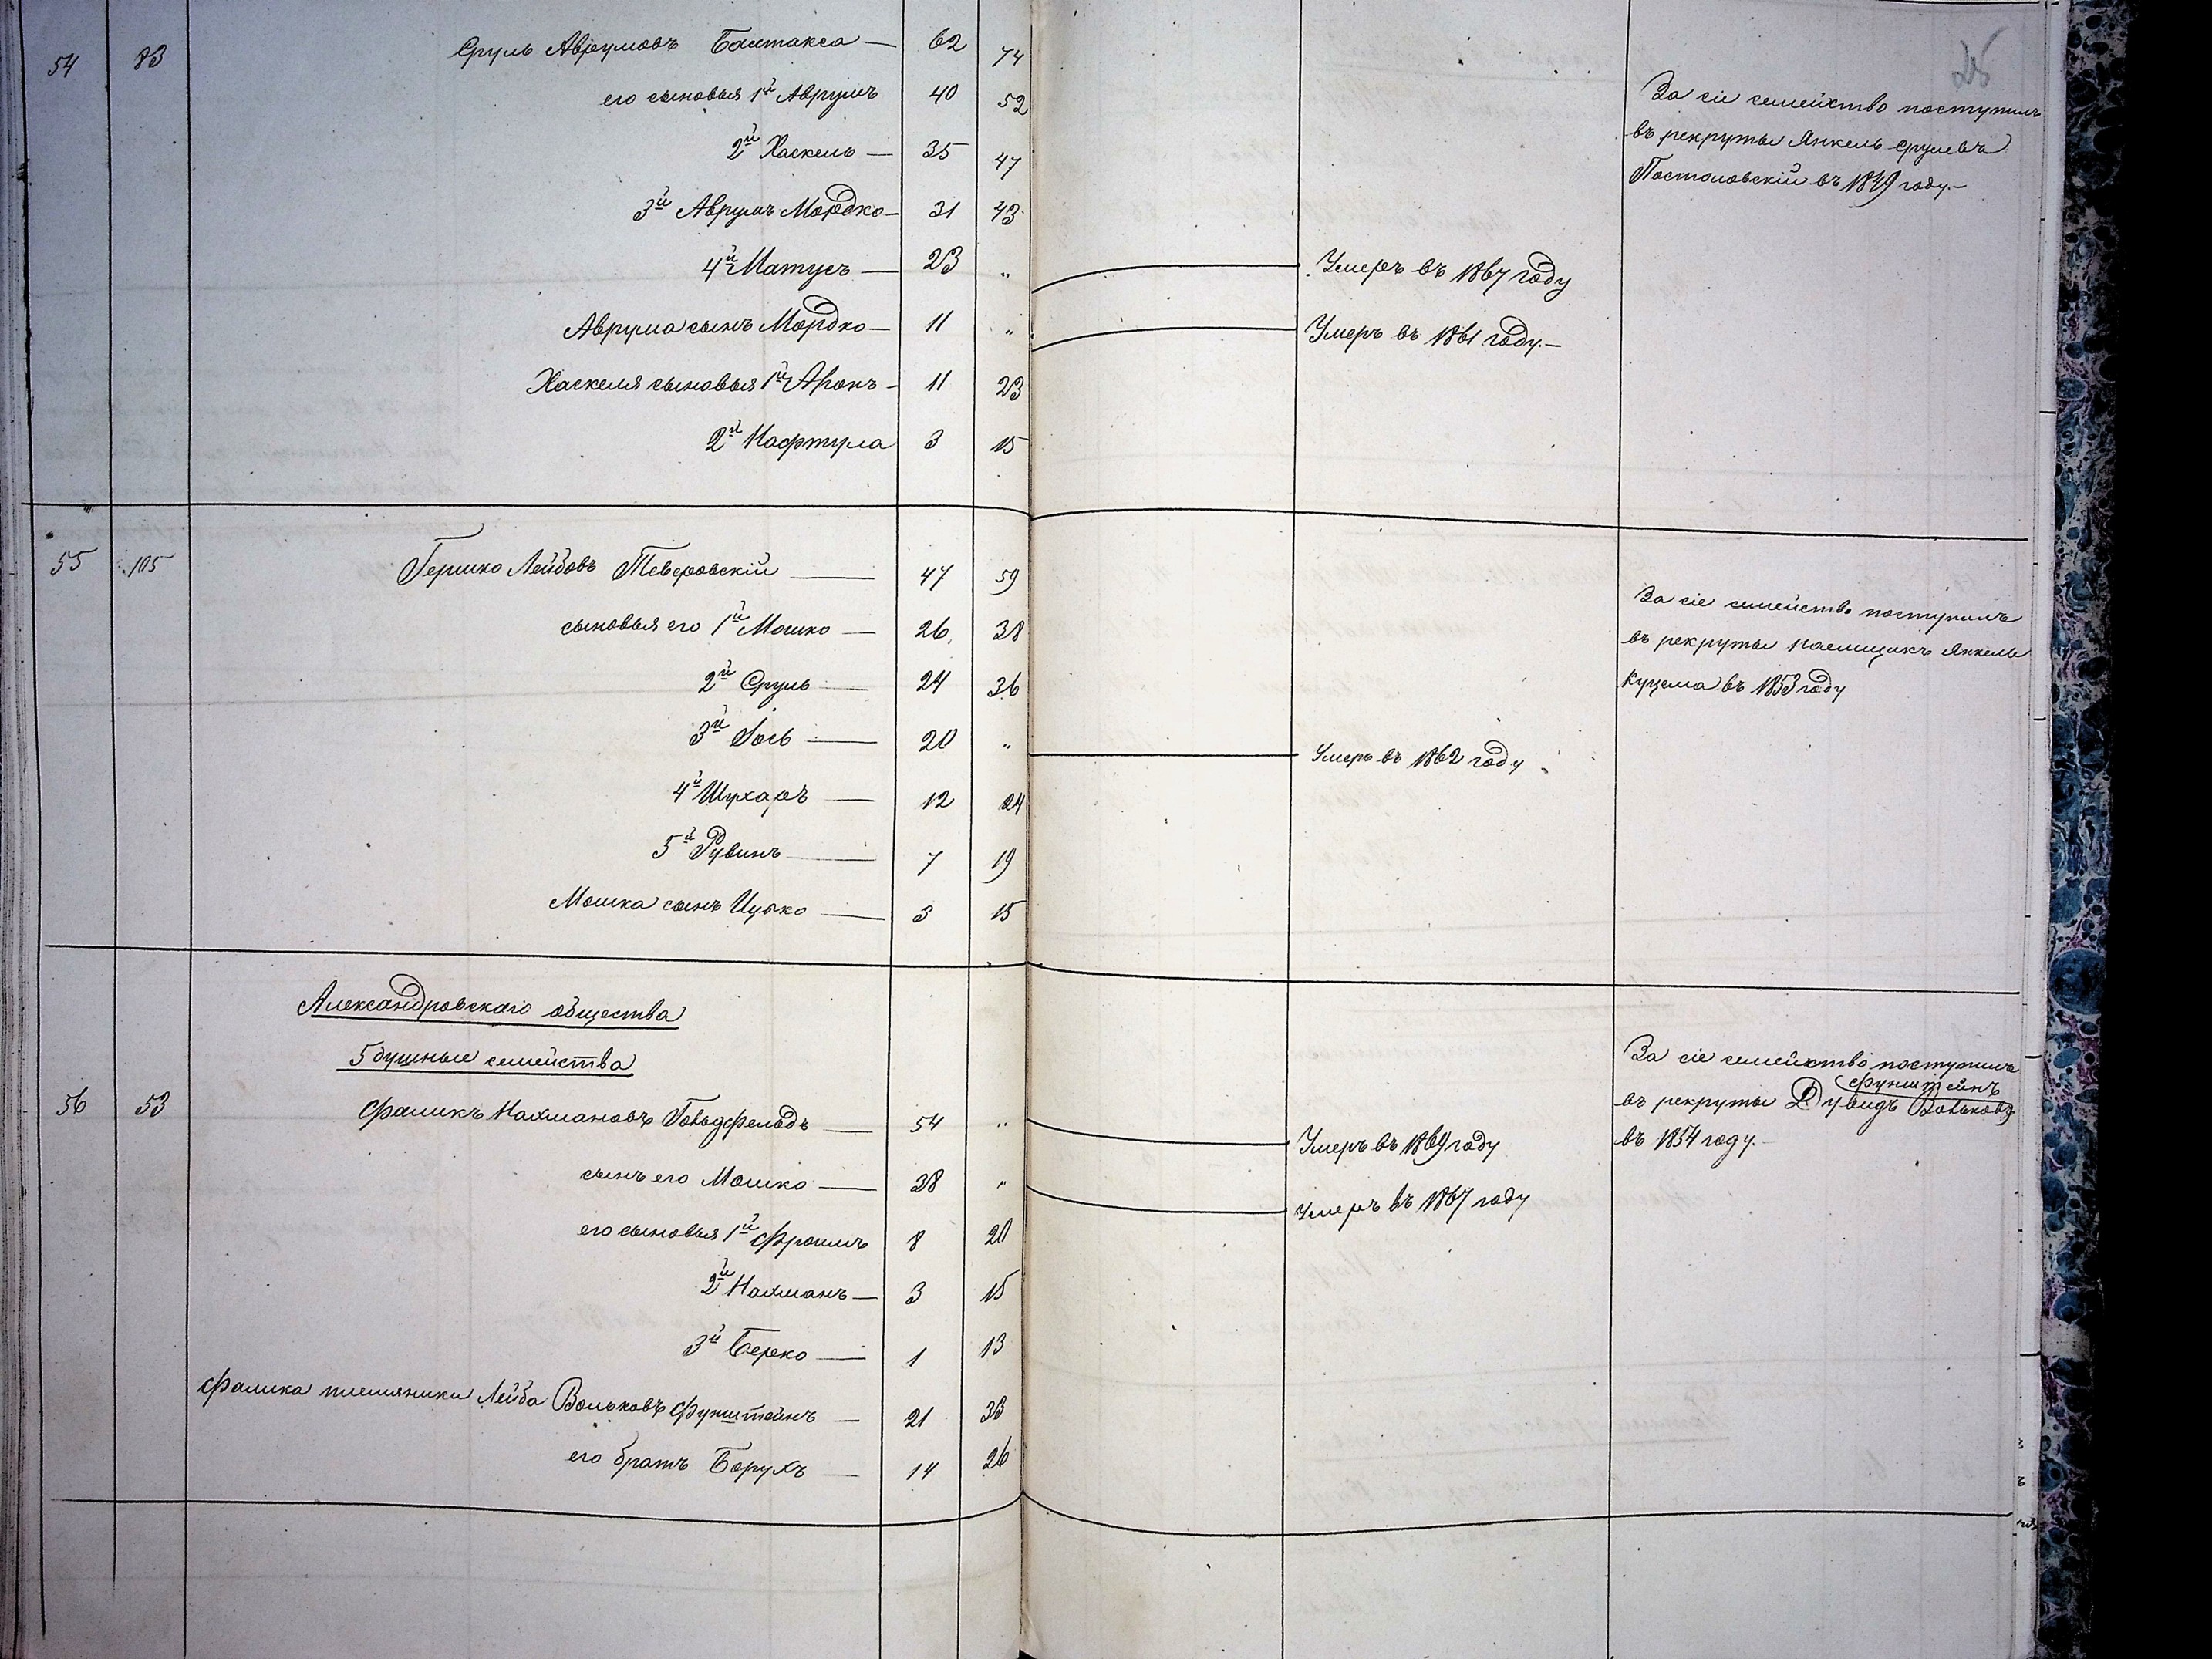 25
54 83 Сруль Аврумовъ Бахтакса — 62 74
его сыновья 1й Аврумъ 40 52
2й Хаскель — 35 47
3й Аврумъ Мордко — 31 43
4й Матусъ — 23 „ Умеръ въ 1867 году
Аврума сынъ Мордко — 11 „ Умеръ въ 1861 году. —
Хаскеля сыновья 1й Аронъ — 11 23
2й Нафтула 3 15
За сіе семейство поступилъ
въ рекруты Янкель Срулевъ
Постоловскій въ 1849 году. —
55 105 Гершко Лейбовъ Тверовскій — 47 59
сыновья его 1й Мошко — 26 38
2й Сруль — 24 36
3й Іось — 20 „ Умеръ въ 1862 году
4й Шухаръ — 12 24
5й Рувинъ — 7 19
Мошка сынъ Ицько — 3 15
За сіе семейство поступилъ
въ рекруты наемщикъ Янкель
въ 1853 году
Александровскаго общества
5 душныые семейства
56 53 Фаликъ Нахмановъ Гольдфельдъ — 54 „ Умеръ въ 1869 году
сынъ его Мошко — 38 „ Умеръ въ 1867 году
его сыновья 1й Фроимъ 8 20
2й Нахманъ — 3 15
3й Берко — 1 13
Фалика племяники Лейба Вольковъ Функштейнъ — 21 33
его братъ Борухъ — 14 26
За сіе семейство поступилъ
Функштейнъ
въ рекруты Дувидъ Вольковъ
въ 1854 году. —